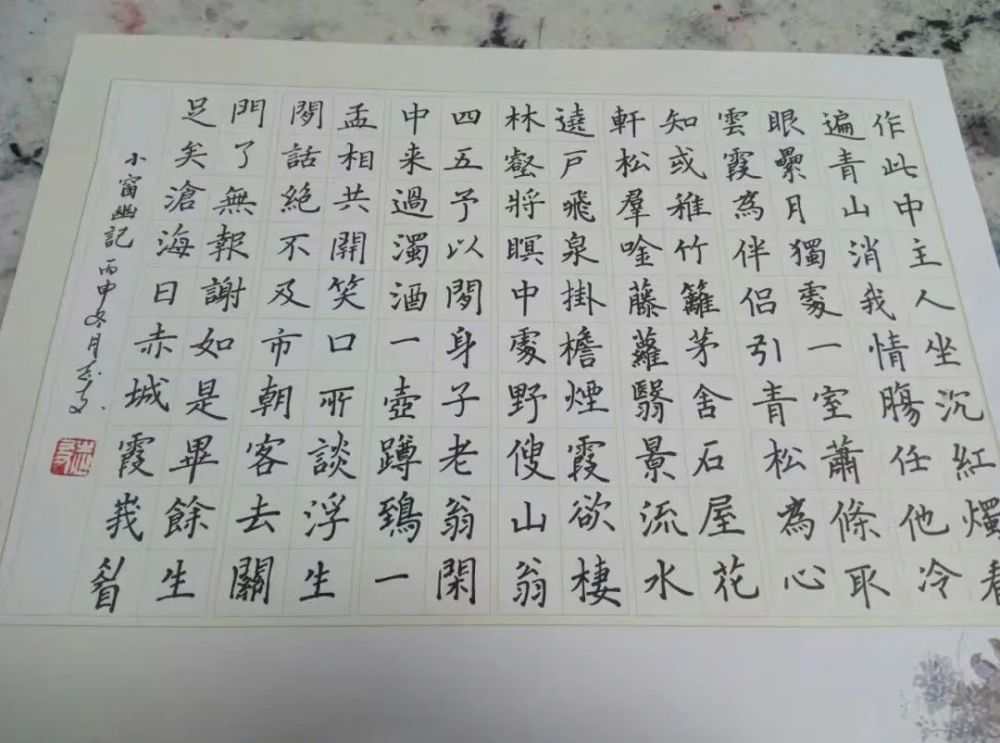 作此中主人坐沉紅燭看
遍青山消我情腸任他冷
眼纍月獨處一室蕭條取
雲霞為伴侶引青松為心
知或稚竹籬茅舍石屋花
軒松羣唫藤蘿翳景流水
遶戶飛泉掛檐煙霞欲棲
林壑將暝中處野傁山翁
四五予以閒身子老翁閑
中来過濁酒一壺蹲鵄一
盂相共開笑口所談浮生
閒話絕不及市朝客去關
門了無報謝如是畢餘生
足矣滄海日赤城霞峩眉
小窗幽記 丙申冬月